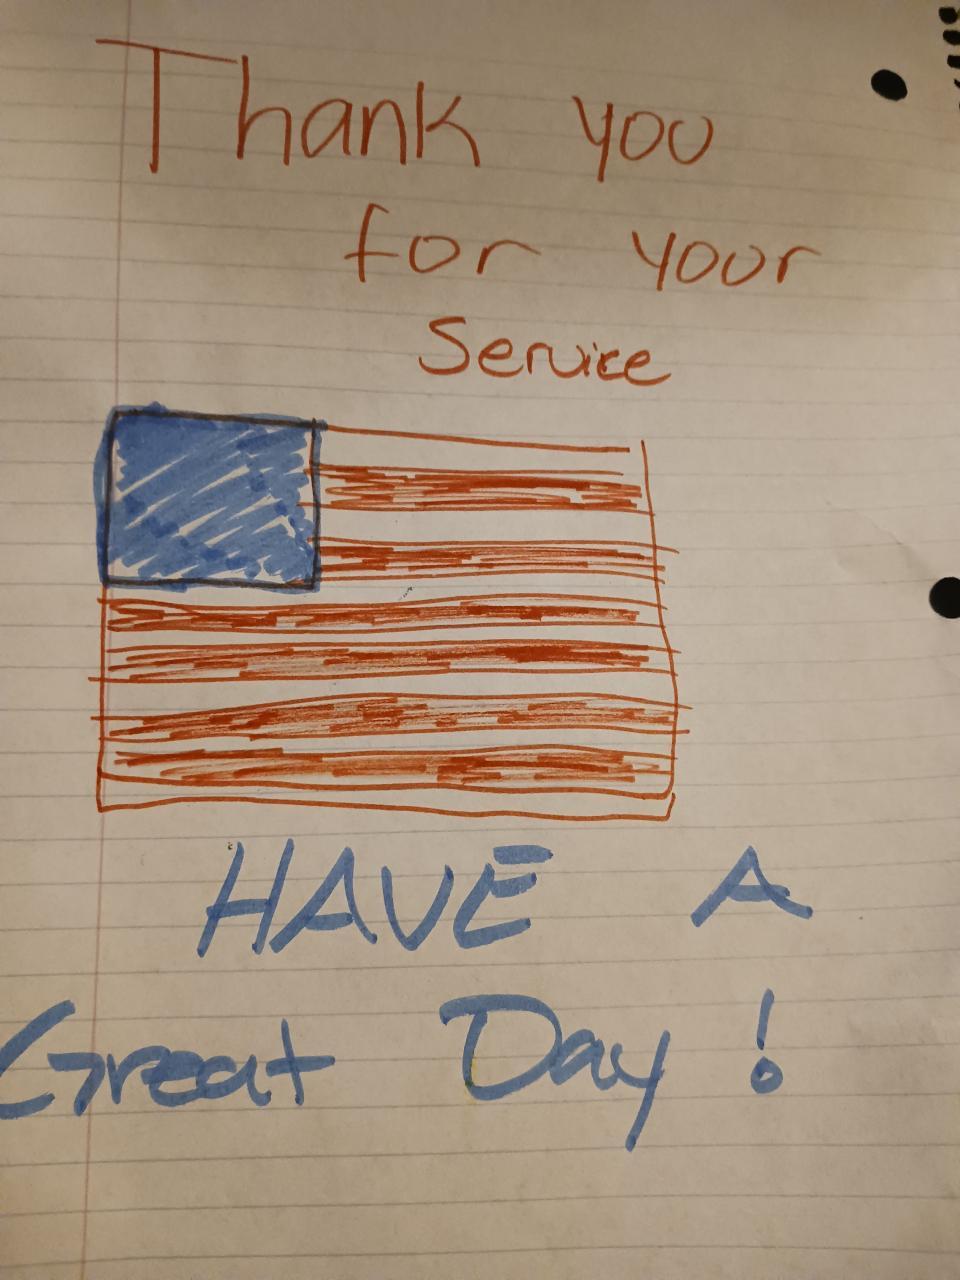 Thank you
for your
Service
HAVE A
Great Day!